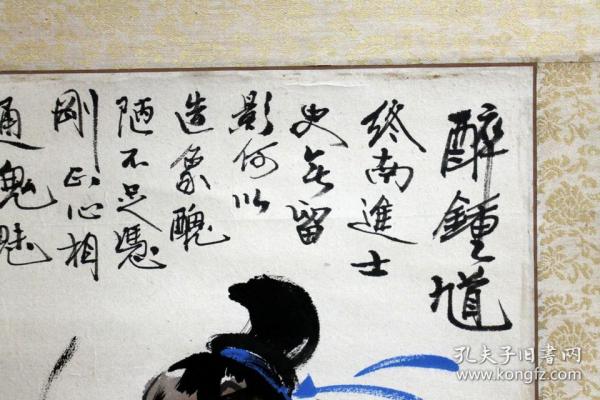 醉鍾馗
終南進士
史無留
影何以
造象醜
陋不足憑
剛正心相
通鬼魅
孔夫子旧书网
www.kongfz.com